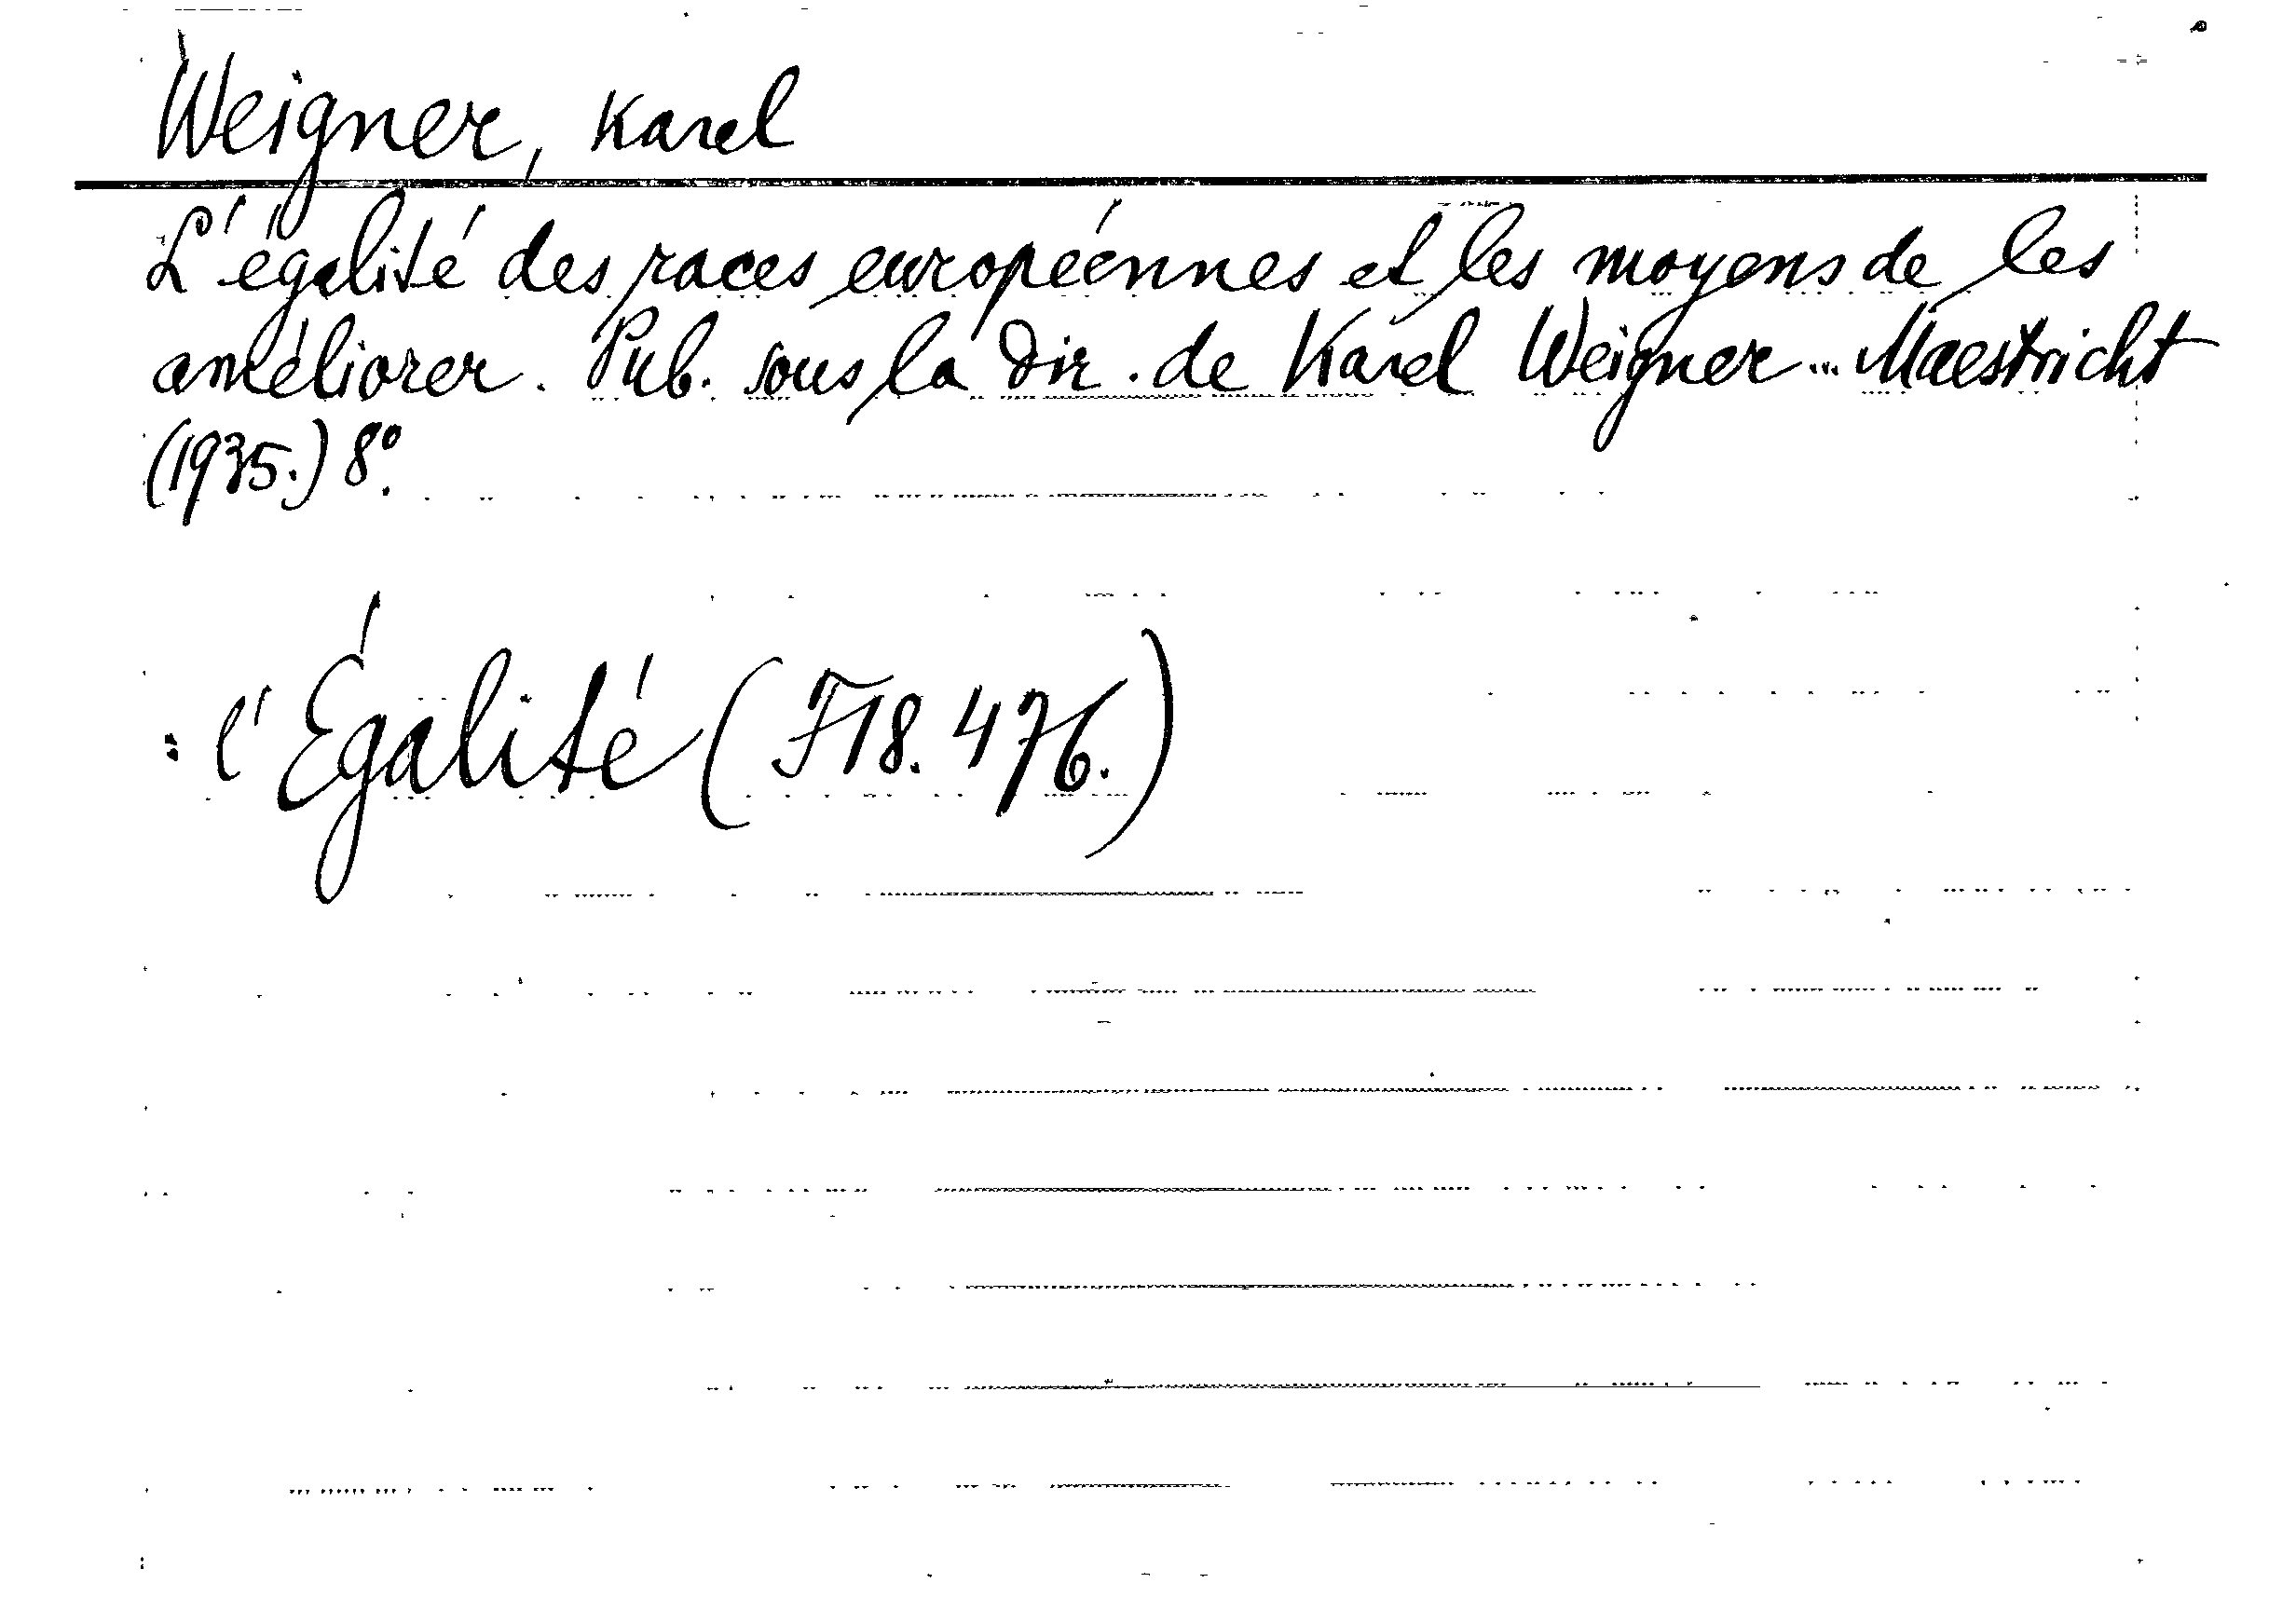 Weigner, Karel
L'égalité des races européennes et les moyens de les
améliorer. Pub. sous la dir. de Karel Weigner... Maestricht
(1935.) 8º.
: l'Égalité (F18.476.)